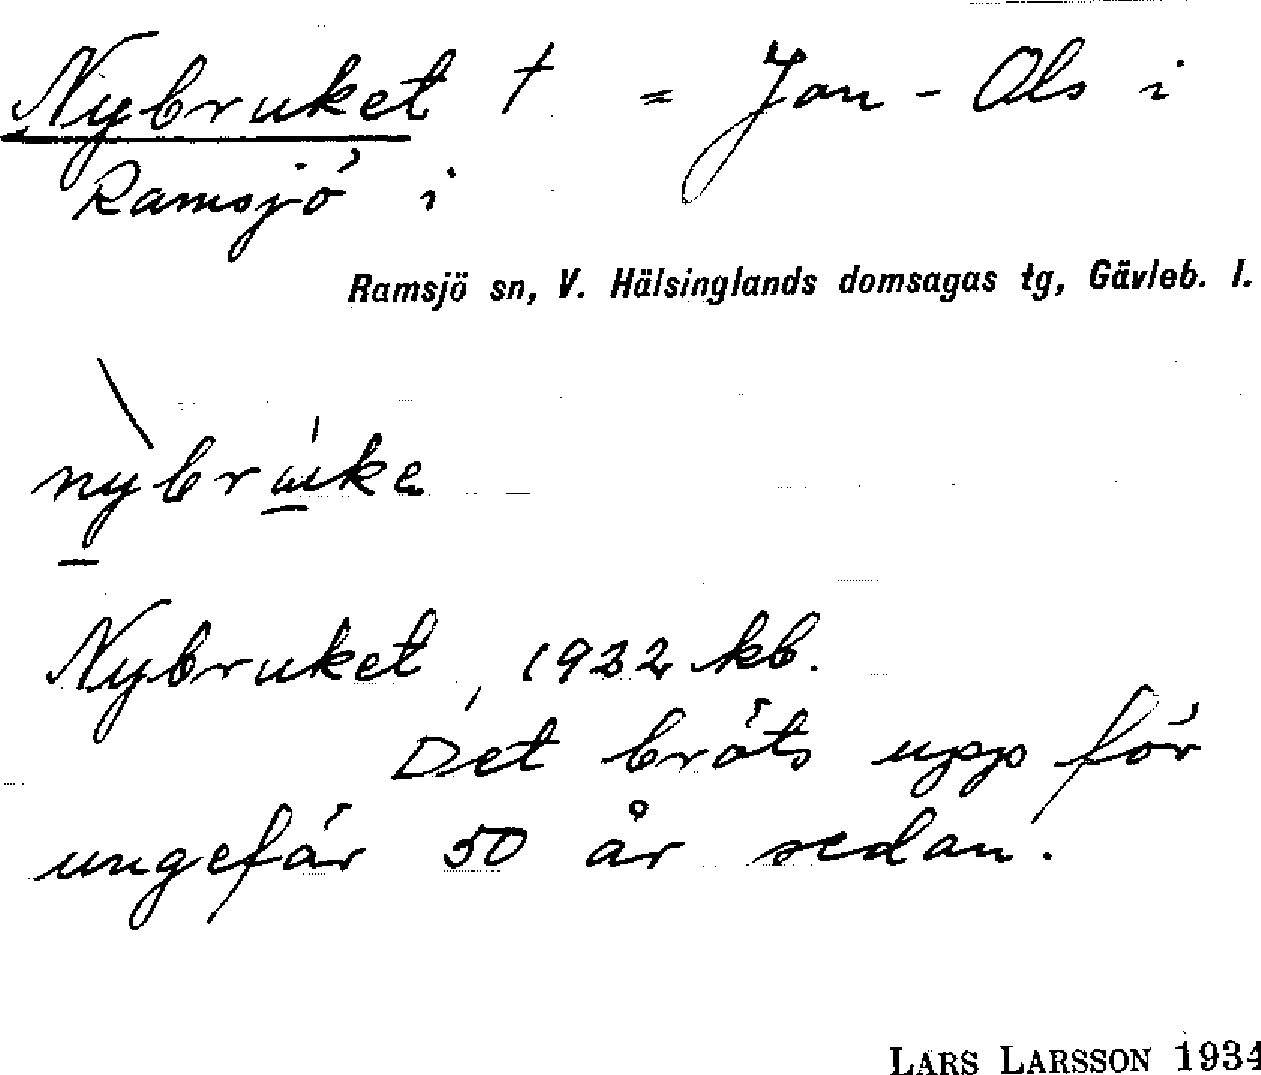 Nybruket † = Jon-Ols i
Ramsjö i
Ramsjö sn, V. Hälsinglands domsagas tg, Gävleb. l.
nỳbrúke
Nybruket, 1922 kb.
Det bröts upp för
ungefär 50 år sedan.
LARS LARSSON 1934